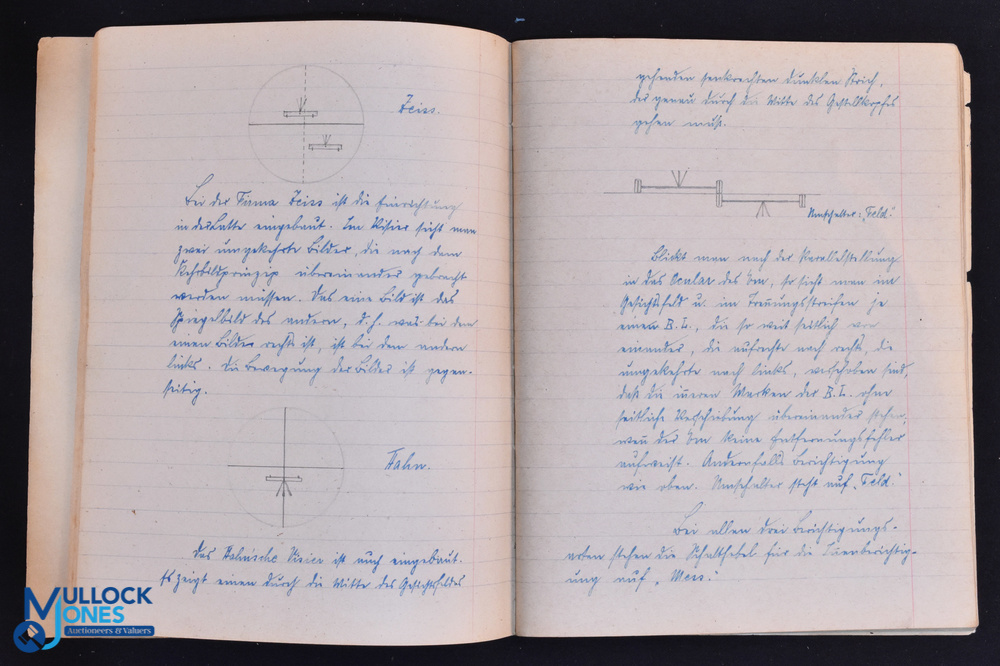 Zeiss.
Bei der Firma Zeiss ist die Einrichtung
in der Latte eingebaut. Im Visier sieht man
zwei umgekehrte Bilder, die nach dem
Kehrbildprinzip übereinander gebracht
werden müssen. Das eine Bild ist das
Spiegelbild des andern, d. h. was bei dem
einen Bilde rechts ist, ist bei dem andern
links. Die Bewegung der Bilder ist gegen-
seitig.
Hahn.
Das Hahnsche Visier ist auch eingebaut.
Es zeigt einen durch die Mitte des Gesichtsfeldes
gehenden senkrechten dunklen Strich,
der genau durch die Mitte des Gestellkopfes
gehen muß.
Umschalter: „Feld."
Blickt man nach der Parallelstellung
in das Ocular des Em, so sieht man im
Gesichtsfeld u. im Trennungsstreifen je
einen B. L., die so weit seitlich von
einander, die aufrechte nach rechts, die
umgekehrte nach links, verschoben sind,
daß die inneren Marken der B. L. ohne
seitliche Verschiebung übereinander stehen,
wenn der Em keine Entfernungsfehler
aufweist. Andernfalls Berichtigung
wie oben. Umschalter steht auf „Feld."
Bei allen drei Berichtigungs-
arten stehen die Schalthebel für die Innenberichtig-
ung auf „Mess."
MULLOCK
JONES
Auctioneers & Valuers